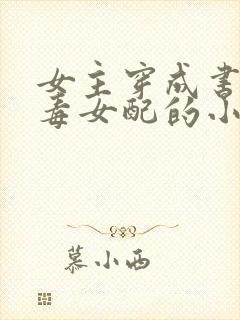 女主穿成书
毒女配的小
慕小西